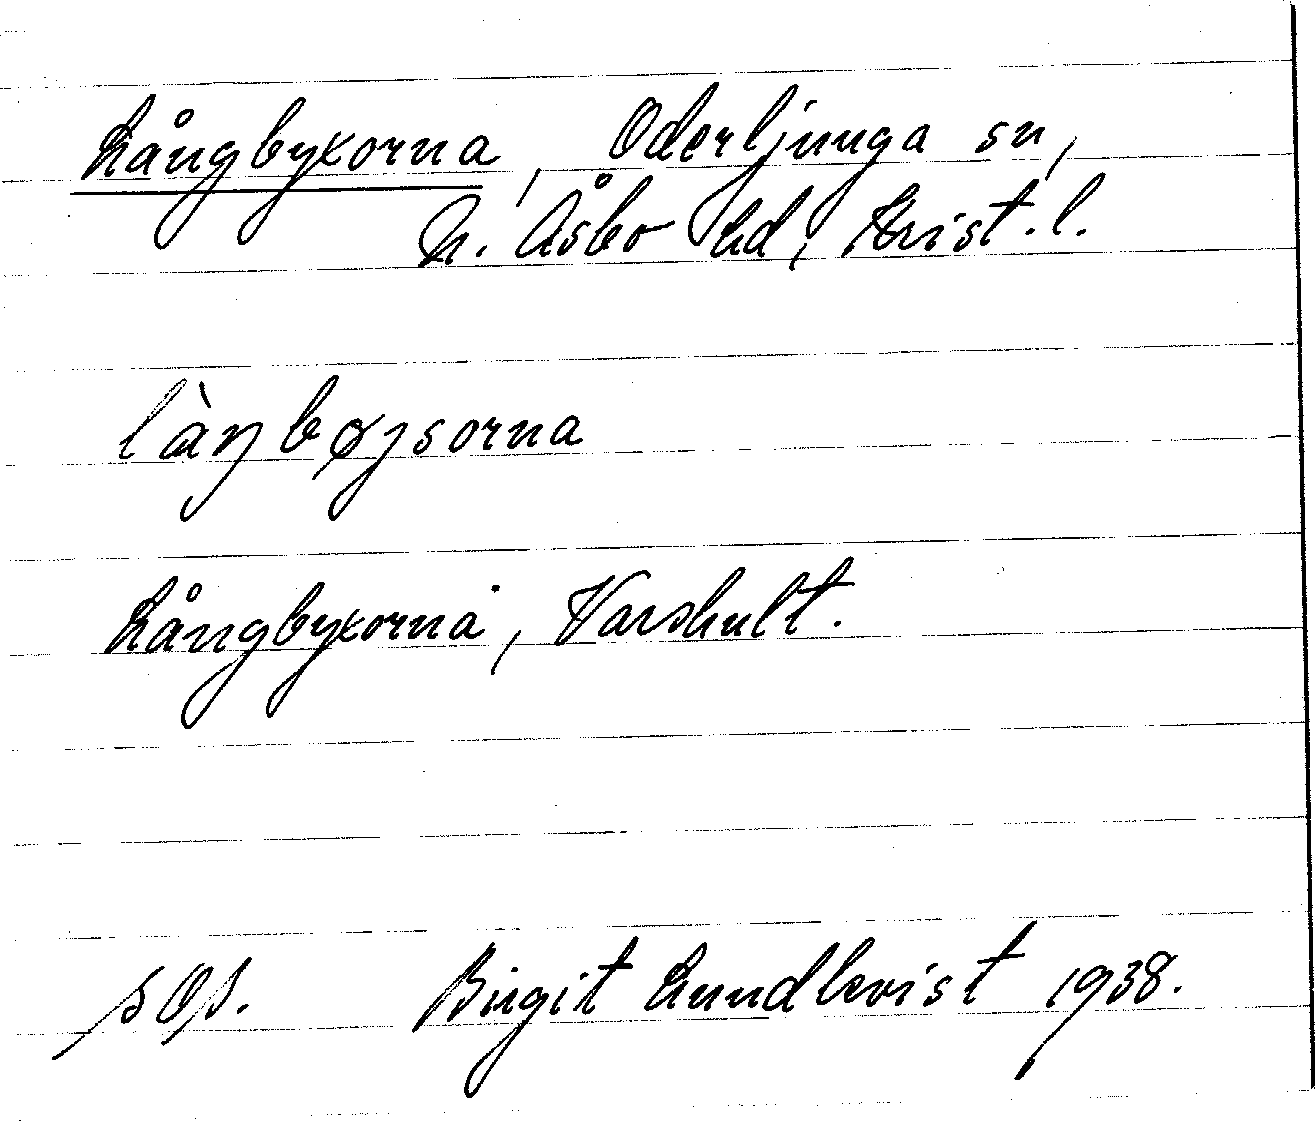 Långbyxorna, Oderljunga sn,
N. Åsbo hd, Krist. l.
làŋbøjsorna
Långbyxorna, Varshult.
Birgit Lundkvist 1938.